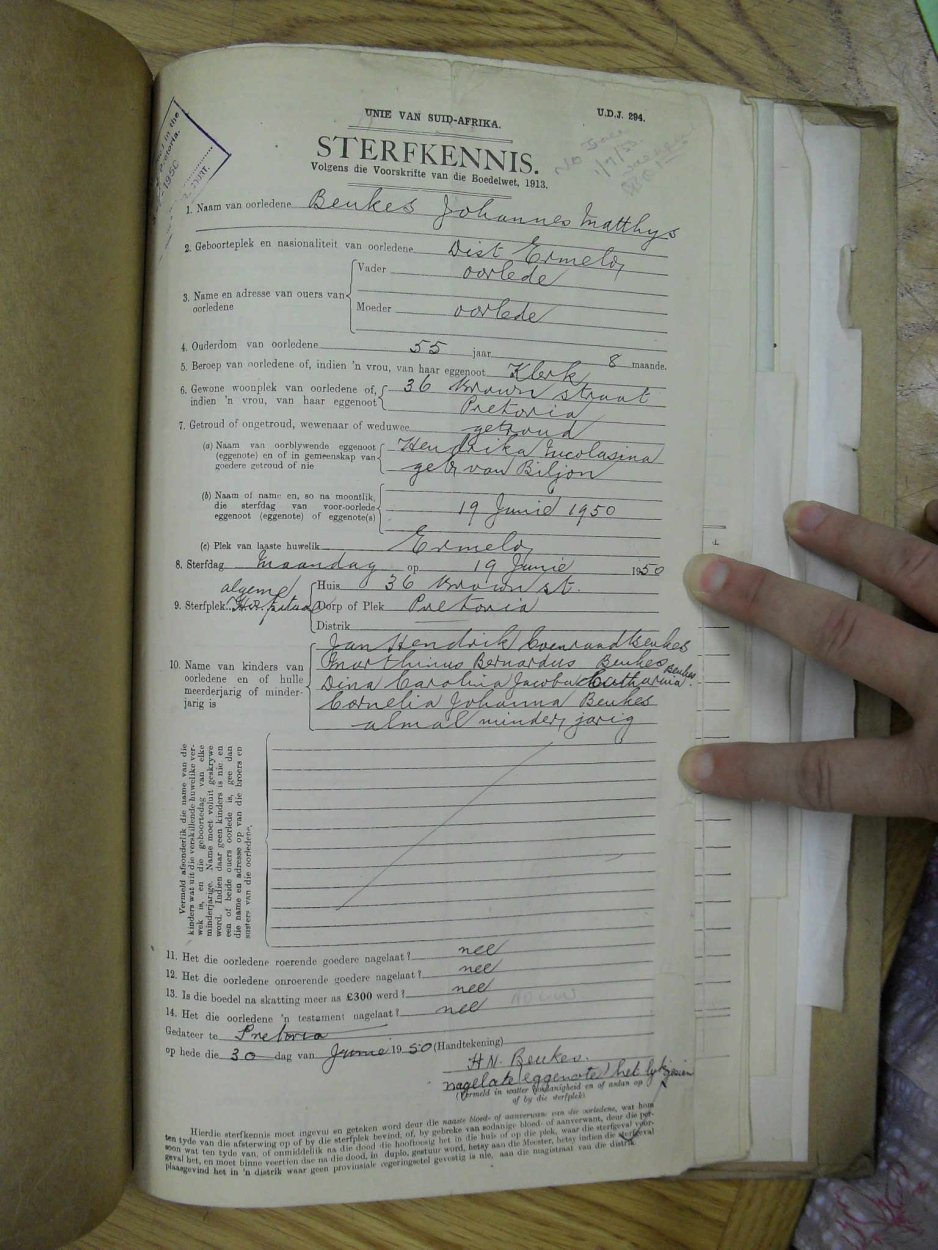 UNIE VAN SUID-AFRIKA.
U.D.J. 294.
STERFKENNIS.
Volgens die Voorskrifte van die Boedelwet, 1913.
1. Naam van oorledene Beukes Johannes Matthys
2. Geboorteplek en nasionaliteit van oorledene Dist Ermelo,
3. Name en adresse van ouers van oorledene
Vader oorlede
Moeder oorlede
4. Ouderdom van oorledene 55 jaar 8 maande.
5. Beroep van oorledene of, indien 'n vrou, van haar eggenoot Klerk
6. Gewone woonplek van oorledene of, 36 Brown straat
indien 'n vrou, van haar eggenoot Pretoria
7. Getroud of ongetroud, wewenaar of weduwee getroud
(a) Naam van oorblywende eggenoot Hendrika Nicolasina
(eggenote) en of in gemeenskap van geb van Biljon
goedere getroud of nie
(b) Naam of name en, so na moontlik,
die sterfdag van voor-oorlede 19 Junie 1950
eggenoot (eggenote) of eggenote(s)
(c) Plek van laaste huwelik Ermelo,
8. Sterfdag Maandag op 19 Junie 1950
algeme
9. Sterfplek Hospitaal
Huis 36 Brown st.
Dorp of Plek Pretoria
Distrik
10. Name van kinders van
oorledene en of hulle
meerderjarig of minder-
jarig is
Jan Hendrik Coenraad Beukes
Marthinus Bernardus Beukes
Dina Carolina Jacoba Catharina Beukes
Cornelia Johanna Beukes
almal minder jarig
Vermeld afsonderlik die name van die
kinders wat uit die verskillende huwelike ver-
wek is, en die geboortedag van elke
minderjarige. Name moet voluit geskrywe
word. Indien daar geen kinders is nie en
een of beide ouers oorlede is, gee dan
die name en adresse op van die broers en
susters van die oorledene.
11. Het die oorledene roerende goedere nagelaat? nee
12. Het die oorledene onroerende goedere nagelaat? nee
13. Is die boedel na skatting meer as £300 werd? nee
14. Het die oorledene 'n testament nagelaat? nee
Gedateer te Pretoria
op hede die 30 dag van Junie 1950 (Handtekening)
H.N. Beukes.
nagelate eggenote het lyk gesien
(Vermeld in watter hoedanigheid en of aldan op
of by die sterfplek)
Hierdie sterfkennis moet ingevul en geteken word deur die naaste bloed- of aanverwant van die oorledene, wat hom
ten tyde van die afsterwing op of by die sterfplek bevind, of, by gebreke van sodanige bloed- of aanverwant, deur die per-
soon wat ten tyde van, of onmiddellik na die dood die hooftoesig het in die huis of op die plek, waar die sterfgeval voor-
geval het, en moet binne veertien dae na die dood, in duplo, gestuur word, hetsy aan die Meester, hetsy indien die sterfgeval
plaasgevind het in 'n distrik waar geen provinsiale regeringsetel gevestig is nie, aan die magistraat van die distrik.